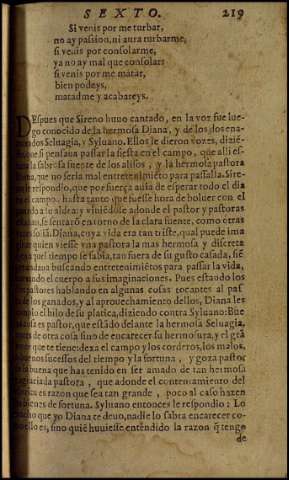 SEXTO. 219
Si venis por me turbar,
no ay passion, ni aura turbarme,
si venis por consolarme,
ya no ay mal que consolar:
si venis por me matar,
bien podeys,
matadme y acabareys.
DEspues que Sireno huuo cantado, en la voz fue lue-
go conocido de la hermosa Diana, y de los dos ena-
morados Seluagia, y Syluano. Ellos le dieron vozes, dizié-
que si pensaua passar la siesta en el campo, que alli es-
la sabrosa fuente de los alisos, y la hermosa pastora
Diana, que no seria mal entretenimiéto para passalla. Sire-
le respondio, que por fuerça auia de esperar todo el dia
en el campo, hasta tanto que fuesse hora de boluer con el
ganado a su aldea: y viniédose adonde el pastor y pastoras
estauan, se sentarō en torno de la clara fuente, como otras
vezes solian. Diana, cuya vida era tan triste, qual puede ima
ginar quien viesse vna pastora la mas hermosa y discreta
que en aquel tiempo se sabia, tan fuera de su gusto casada, siē
pre andaua buscando entretenimiētos para passar la vida,
hurtando el cuerpo a sus imaginaciones. Pues estando los
pastores hablando en algunas cosas tocantes al pas
to de los ganados, y al aprouechamiento dellos, Diana les
rompio el hilo de su platica, diziendo contra Syluano: Bue
na cosa es pastor, que estādo delante la hermosa Seluagia,
trates de otra cosa sino de encarescer su hermosura, y el grā
amor que te tiene: dexa el campo y los corderos, los malos,
o buenos sucessos del tiempo y la fortuna, y goza pastor
de la buena que has tenido en ser amado de tan hermosa
y agraciada pastora, que adonde el contentamiento del
spiritu es razon que sea tan grande, poco al caso hazen
los bienes de fortuna. Syluano entonces le respondio: Lo
mucho que yo Diana te deuo, nadie lo sabra encarecer co-
mo ello es, sino quiē huuiesse entendido la razon q̄ tengo
de